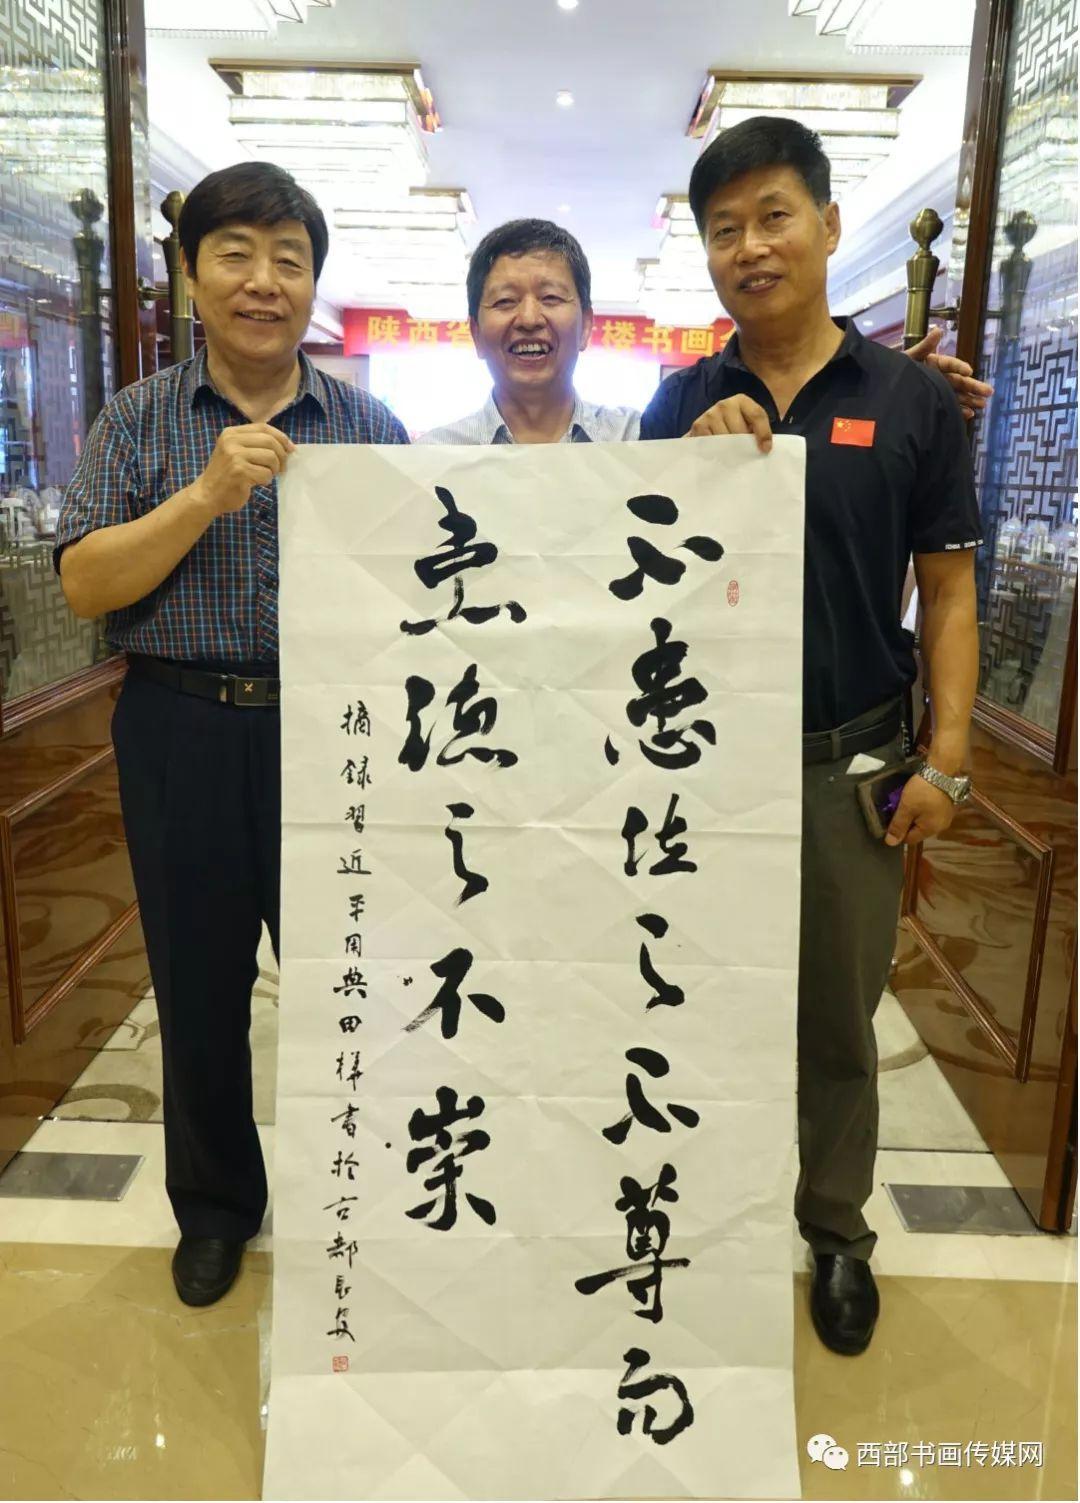 陕西省
楼书画
不患位之不尊而
患德之不崇
摘录习近平用典田桦书于古都长安
西部书画传媒网